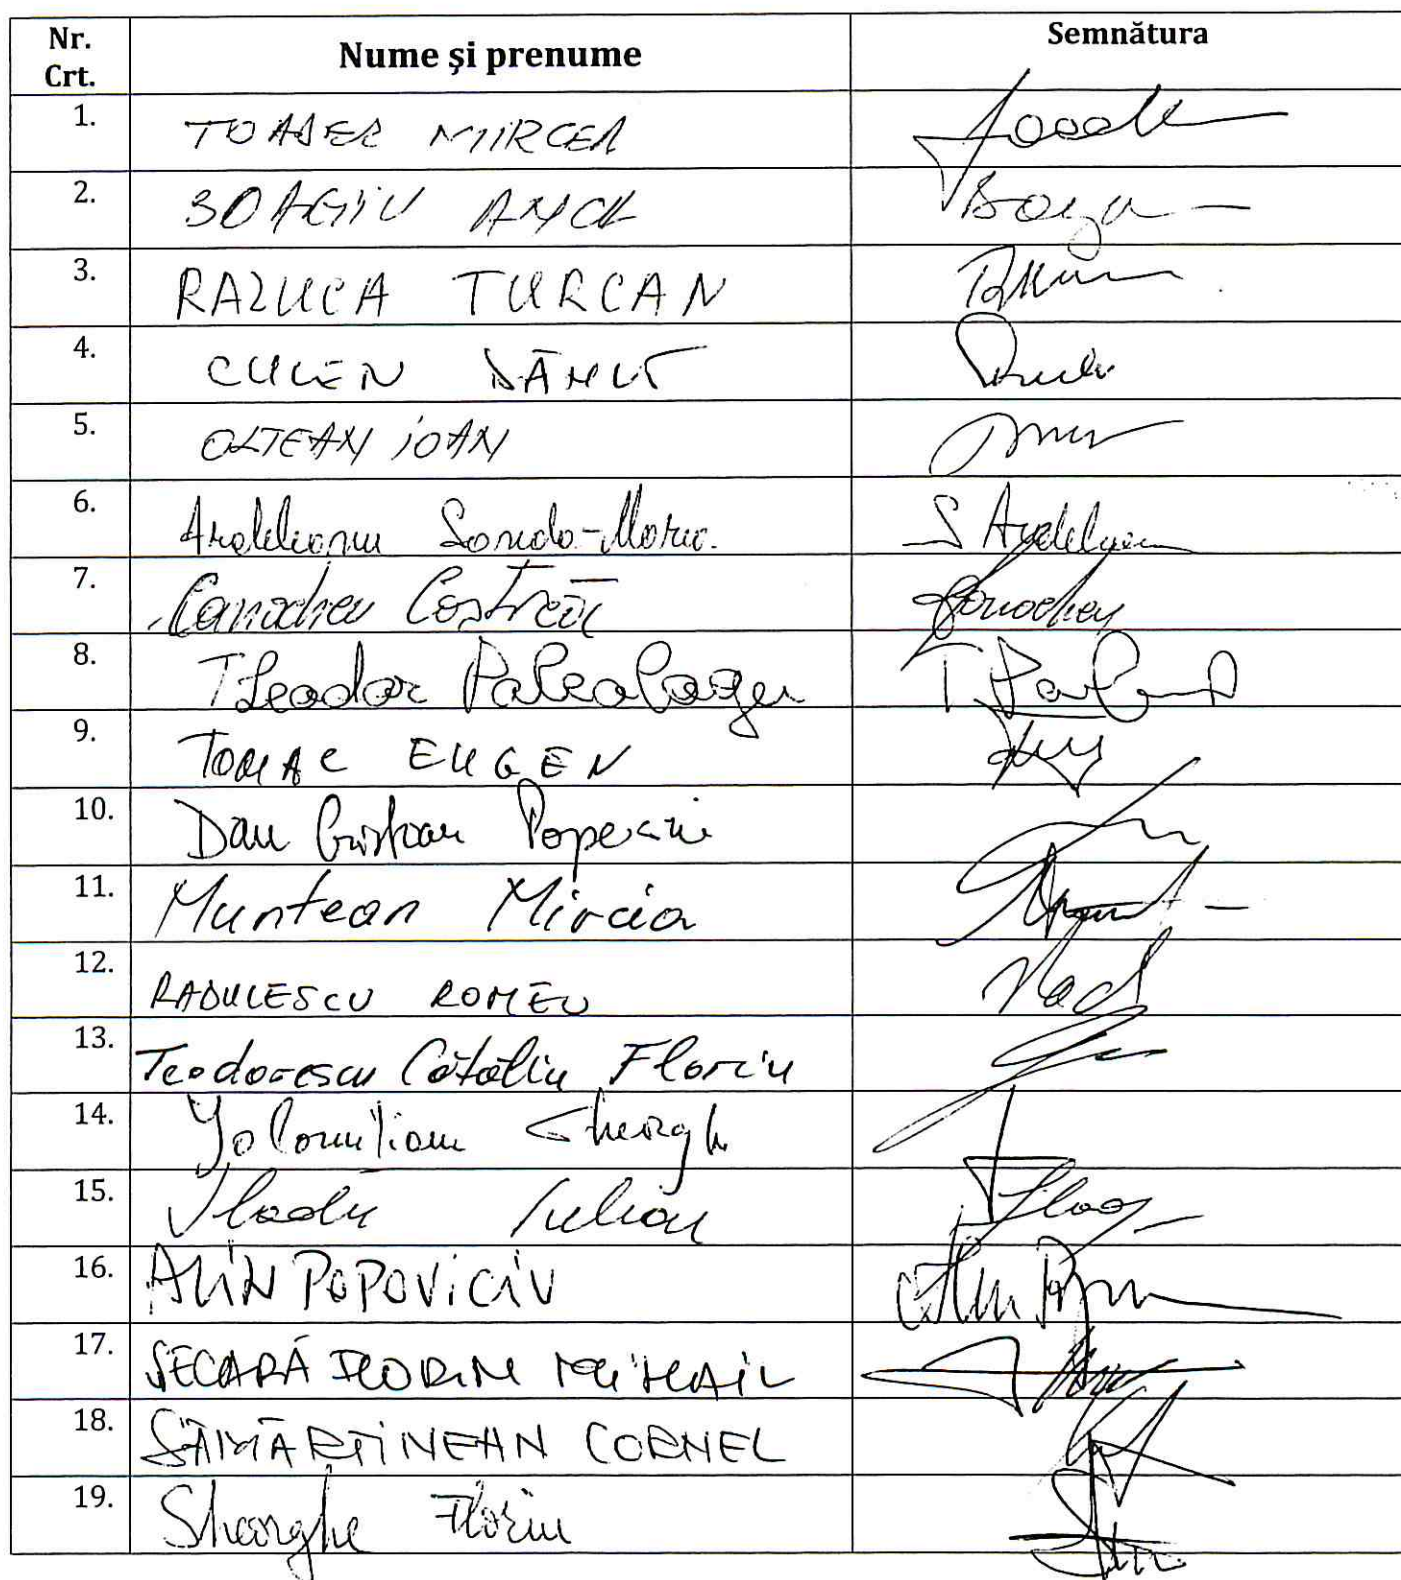 Nr. Crt. Nume și prenume Semnătura
1. TOADER MIRCEA
2. BOAGIU ANCA
3. RALUCA TURCAN
4. CULEN DĂNUȚ
5. OLTEAN IOAN
6. Ardeleanu Sanda-Maria. S Ardeleanu
7. Canacheu Costică Canacheu
8. Theodor Paleologu
9. TOMAC EUGEN
10. Dan Cristian Popescu
11. Muntean Mircia
12. RADULESCU ROMEO
13. Teodorescu Cătălin Florin
14. Ialomițianu Gheorghe
15. Vladu Iulian
16. ALIN POPOVICIU
17. SECARĂ FLORIN MIHAIL
18. SĂMĂRTINEAN CORNEL
19. Gheorghe Florin